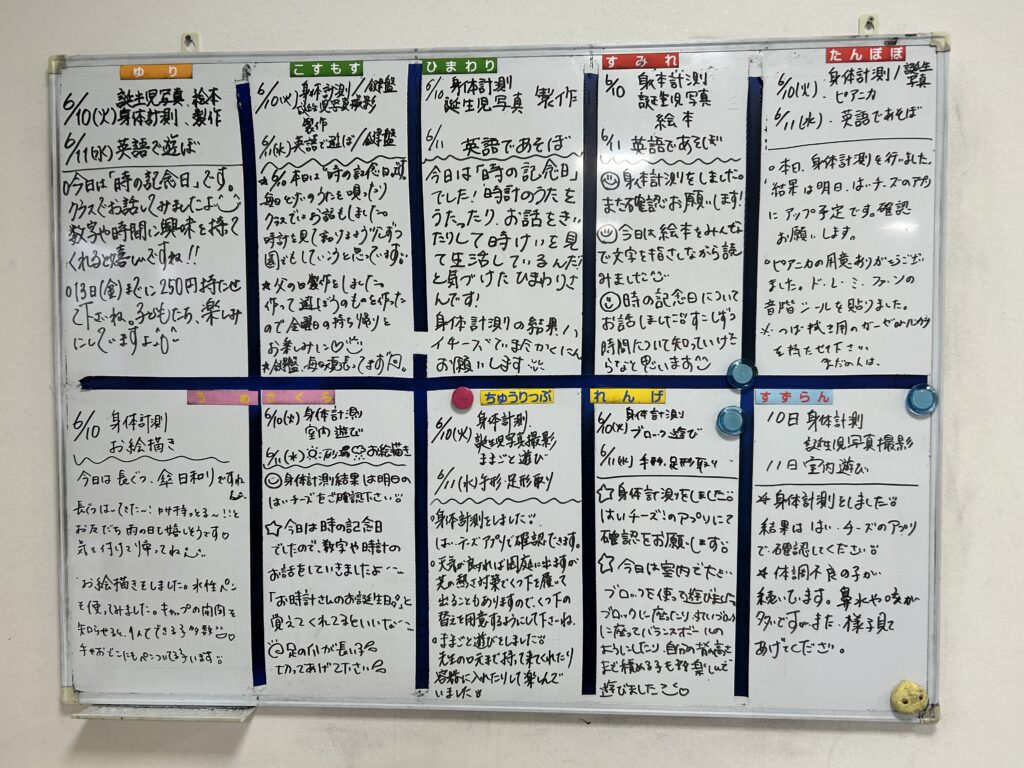 ゆり
6/10(火) 誕生児写真 絵本
身体計測、製作
6/11(水) 英語で遊ぼ
○今日は「時の記念日」です。
クラスでお話してみましたよ
数字や時間に興味を持て
くれると嬉しいですね!!
○13日(金)までに250円持たせ
て下さいね。子どもたち、楽しみ
にしていますよ
こすもす
6/10(火) 身体計測/鍵盤
誕生児写真撮影
製作
6/11(水) 英語で遊ぼ/鍵盤
★6/10 本日は「時の記念日」
毎日とけいのうたを唄ったり
クラスでお話もしました。
時計を見て知りますよう少しずつ
園でもしていこうと思っています
★父の日製作をしました。
作って遊ぼうのものを作った
ので金曜の持ち帰りを
お楽しみに♡
★鍵盤、毎日頑張ってます
ひまわり
6/10 身体計測
誕生児写真 製作
6/11 英語であそぼ
今日は「時の記念日」
でした!時計のうたを
うたったり、お話をきい
たりして時けいを見
て生活しているんだ
と気づけたひまわりさ
んです!
身体計測の結果ハ
イチーズでまたかくにん
お願いします
すみれ
6/10 身体計測
誕生児写真
絵本
6/11 英語であそぼ
身体計測をしました。
また確認お願いします!
今日は絵本をみんな
で文字を指さしながら読
みました
時の記念日について
お話しました すこしずつ
時間について知っていけた
らなと思います
たんぽぽ
6/10(火) 身体計測/誕生写真
ピアニカ
6/11(水) 英語であそぼ
○本日、身体計測を行いました。
結果は明日、はいチーズのアプリ
にアップ予定です。確認
お願いします。
○ピアニカの用意ありがとうござい
ました。ド・レ・ミ・ファ・ソの
音階シールを貼りました。
※つば拭き用のガーゼorハンカチ
を持たせて下さい。
まだの人は、
うめ
6/10 身体計測
お絵描き
今日は長ぐつ、傘日和りですね
長ぐつはいてきた~!カサ持っとる~!!と
お友だち雨の日も嬉しそうです
気を付けて帰ってね
お絵描きをしました。水性ペン
を使ってみました。キャップの向向を
知らせると、1人でできる子多数
さくら
6/10(火) 身体計測
室内遊び
6/11(水) 砂場 お絵描き
身体計測結果は明日の
はいチーズをご確認下さい
☆今日は時の記念日
でしたので、数字や時計の
お話をしていきましたよ~
「お時計さんのお誕生日。」と
覚えてくれてるといいな~
足のツメが長い子
切ってあげて下さい
ちゅうりっぷ
6/10(火) 身体計測
誕生児写真撮影
ままごと遊び
6/11(水) 手形・足形取り
○身体計測をしました
はいチーズアプリで確認できます。
○天気が良ければ園庭に出ますが
足の熱さ対策でくつ下を履いて
出ることもありますので、くつ下の
替えを用意するようにして下さいね。
○ままごと遊びをしました
先生の口元まで持って来てくれたり
容器に入れたりして楽しんで
いました
れんげ
6/10(火) 身体計測
ブロック遊び
6/11(水) 手形、足形取り
☆身体計測をしました
はいチーズ!のアプリにて
確認をお願いします
☆今日は室内で大きい
ブロックを使って遊びました
ブロックに座ったり、すいブロック
に座ってバランスボールの
ようにしたり、自分の背高さ
まで積める子も 楽しんで
遊びました
すずらん
10日 身体計測
誕生児写真撮影
11日 室内遊び
★身体計測をしました
結果は はい・チーズのアプリ
で確認してください
★体調不良の子が
続いています。鼻水や咳が
多いですがまた、様子見て
あげてください。